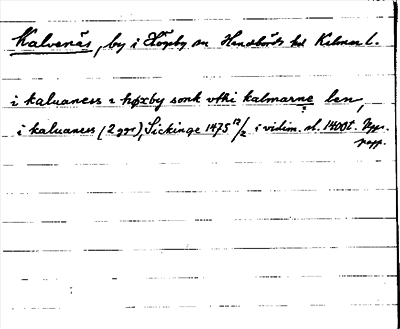 Kalvenäs, by i Högby sn Handbörds hd Kalmar l.
i kaluaness i høxby sonk vtki kalmarne len,
i kaluaness (2 ggr) Sickinge 1475 12/2 i vidim. sl. 1400t.
papp.